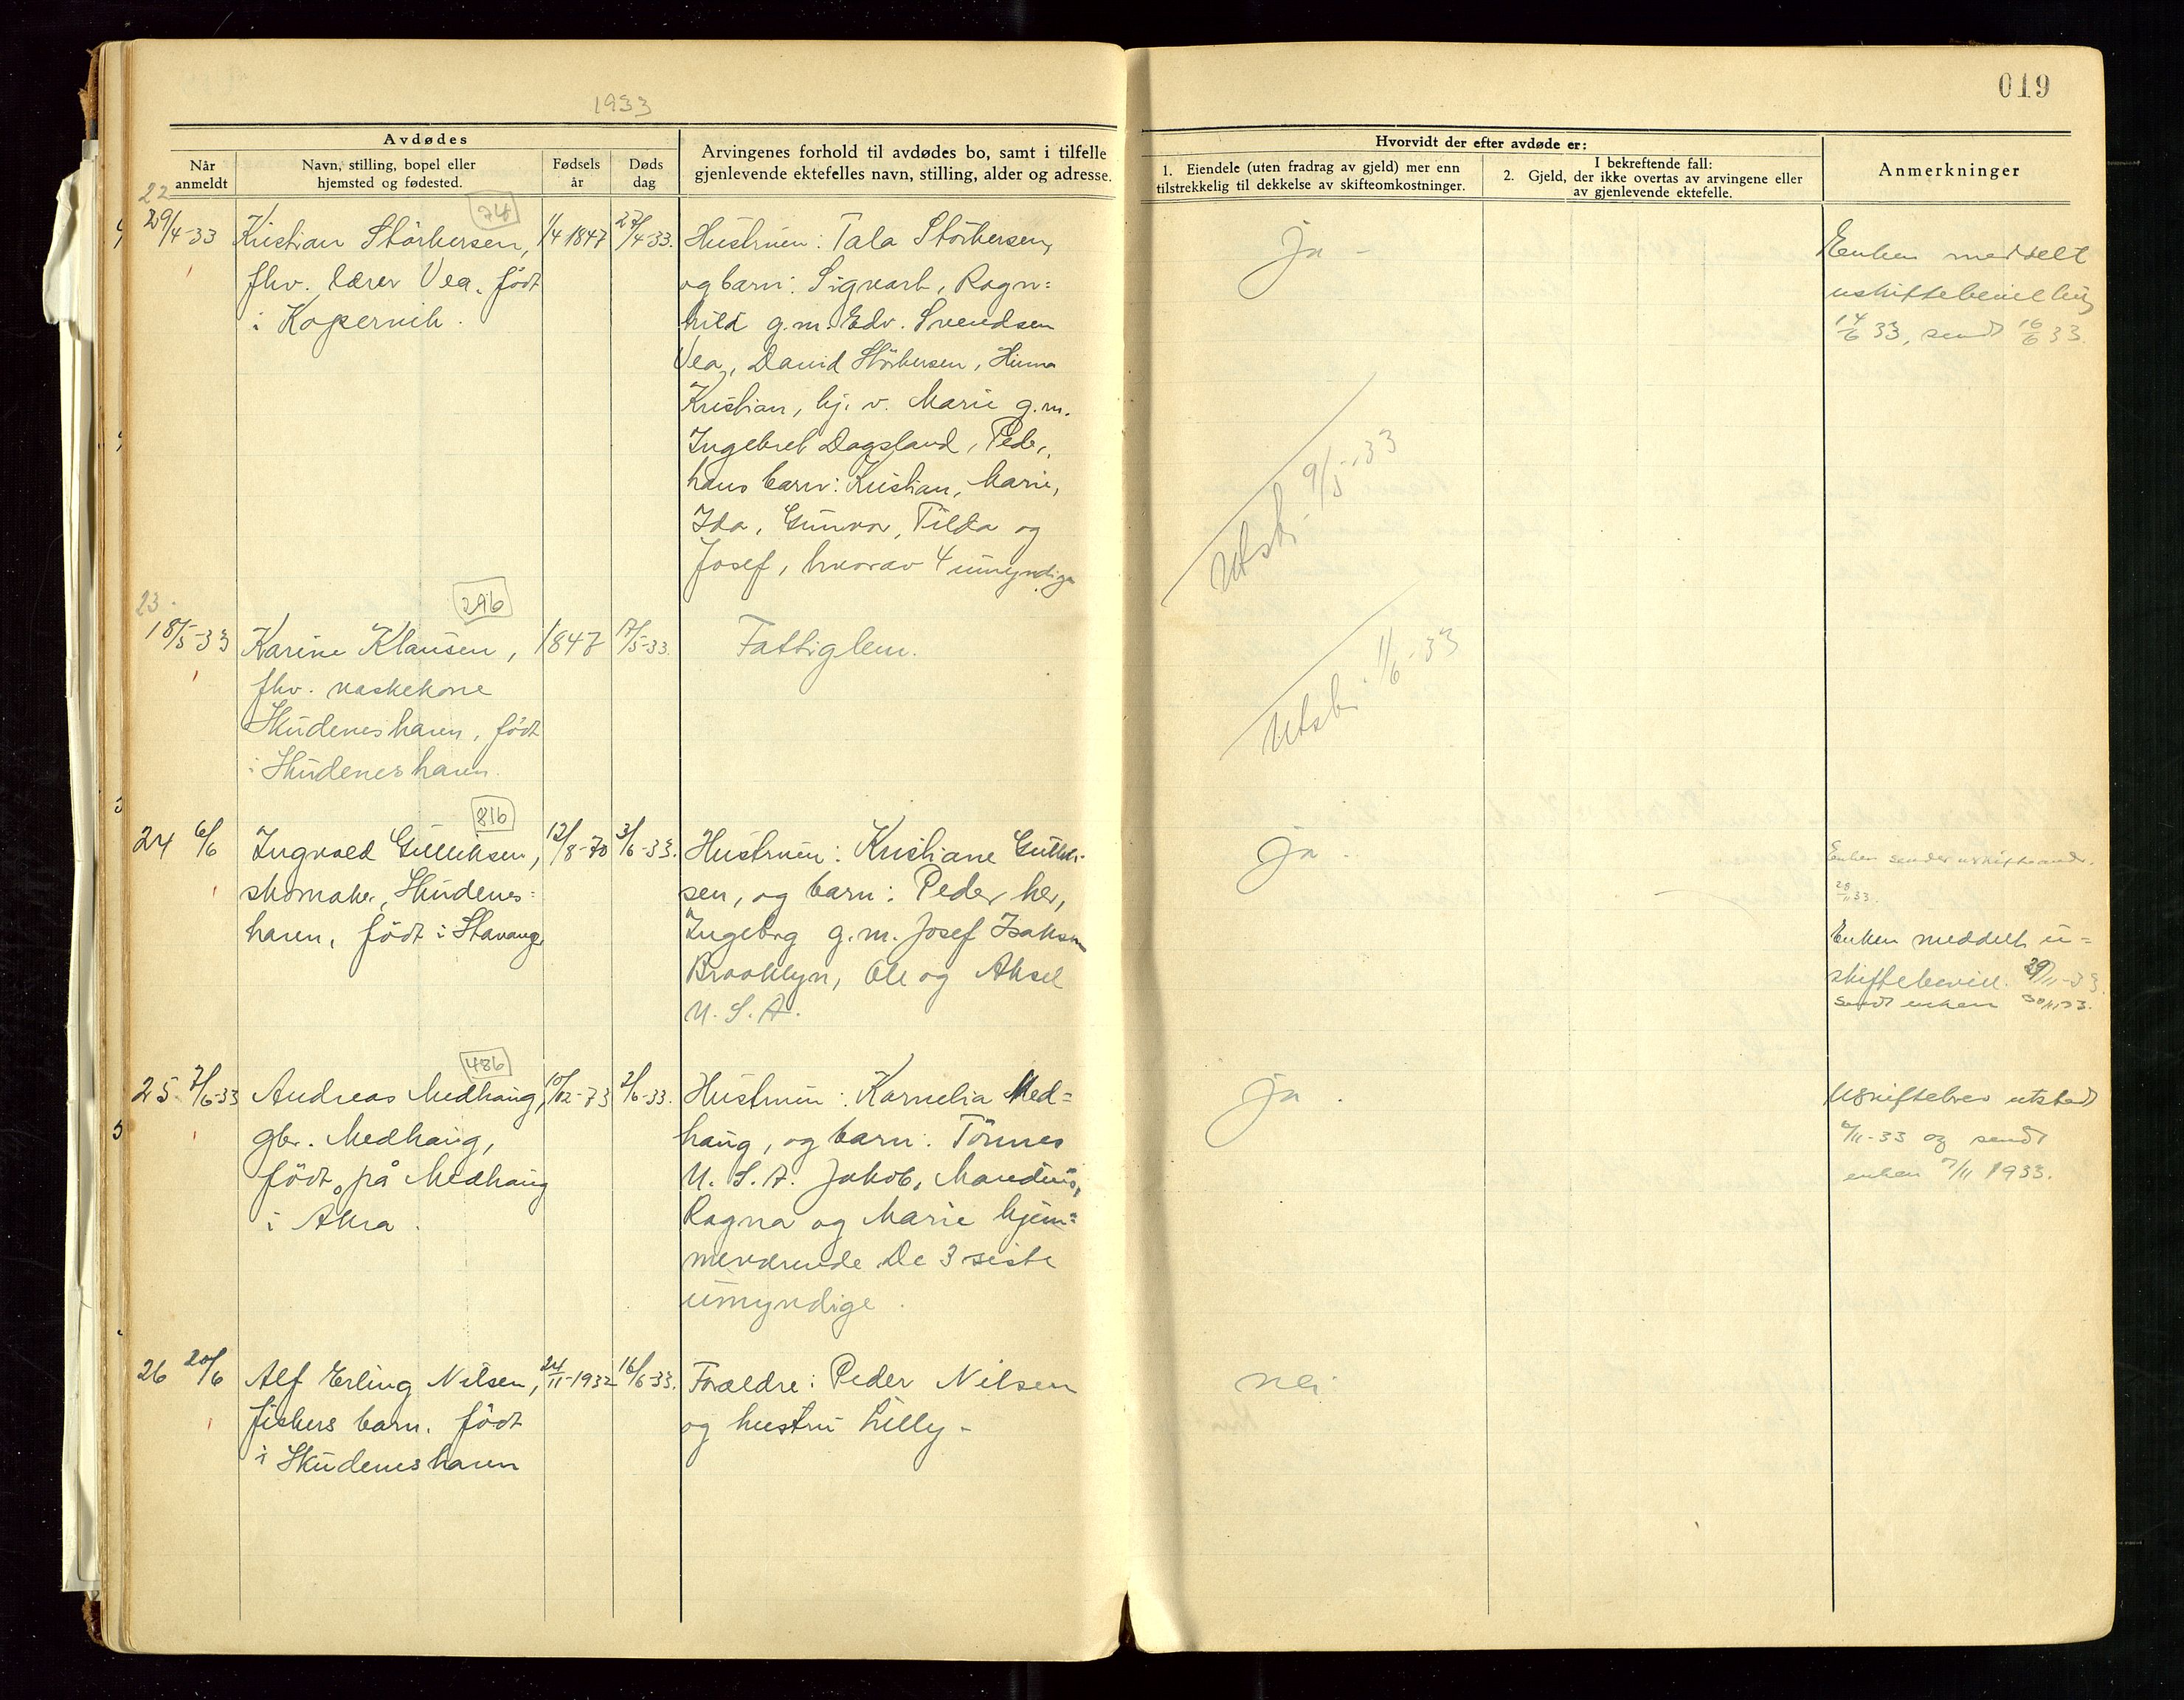 1933
019
Avdødes
Når
anmeldt
Navn, stilling, bopel eller
hjemsted og fødested.
Fødsels
år
Døds
dag
Arvingenes forhold til avdødes bo, samt i tilfelle
gjenlevende ektefelles navn, stilling, alder og adresse.
Hvorvidt der efter avdøde er:
1. Eiendele (uten fradrag av gjeld) mer enn
tilstrekkelig til dekkelse av skifteomkostninger.
I bekreftende fall:
2. Gjeld, der ikke overtas av arvingene eller
av gjenlevende ektefelle.
Anmerkninger
22
29/4-33
74
Kristian Störkersen,
fhv. lærer Vea, född
i Kopervik.
1/4 1847
27/4-33.
Hustruen: Tala Störkersen,
og barn: Sigvart, Ragn=
hild g.m. Edv. Svendsen
Vea, David Störkersen,
Kristian, hj. v. Marie g.m.
Ingebret Dagsland, Peder,
hans barn: Kristian, Marie,
Ida, Gunvor, Tilda og
Josef, hvorav 4 umyndige
ja -
Utskr. 9/5-33
Enken meddelt
uskiftebevilling
14/6 33, sendt 16/6 33.
23.
18/5-33
296
Karine Klausen,
fhv. vaskekone
Skudeneshavn, född
i Skudeneshavn.
1847
17/5-33.
Fattiglem.
Utskr. 1/6-33
24 6/6
816
Ingvald Gulliksen,
skomaker, Skudenes=
havn, född i Stavanger
12/8-70
3/6-33.
Hustruen: Kristiane Gullik-
sen, og barn: Peder her,
Ingeborg g.m. Josef Isaksen
Brooklyn, Ole og Aksel
U.S.A.
ja.
Enken sender uskifteandr.
28/11 33.
Enken meddelt u=
skiftebevill. 29/11-33.
sendt enken 30/11 33.
25. 7/6-33
486
Andreas Medhaug,
gbr. Medhaug,
född på Medhaug
i Åkra.
10/12-73
2/6-33.
Hustruen: Kornelia Med=
haug, og barn: Tönnes
U.S.A. Jakob, Mandius,
Ragna og Marie hjem=
meværende De 3 siste
umyndige.
ja.
Uskiftebrev utstedt
/11-33 og sendt
enken 7/11 1933.
26 20/6
Alf Erling Nilsen,
fiskers barn. född
i Skudeneshavn
24/11-1932
16/6-33.
Foreldre: Peder Nilsen
og hustru Lilly -
nei